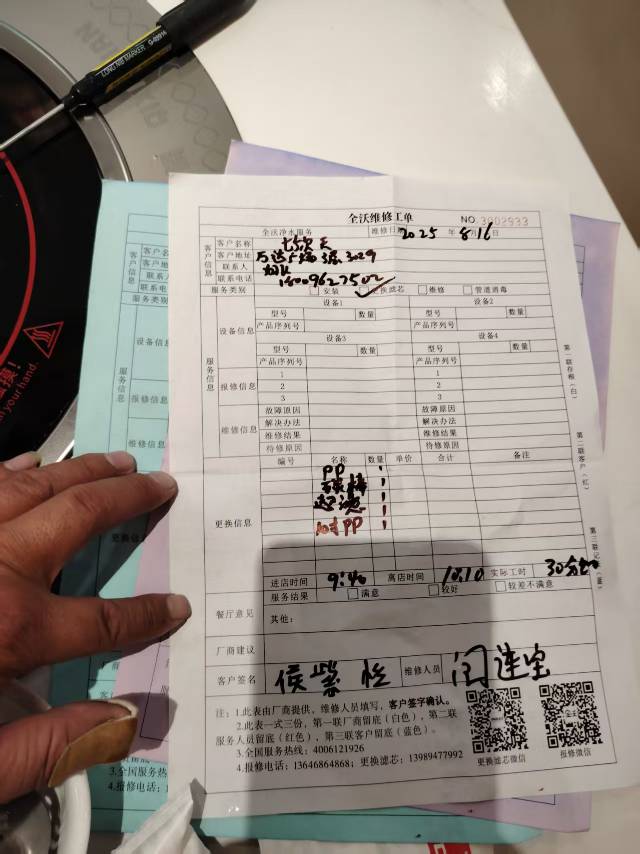 LONG NIB MARKER G-0991A
全沃维修工单
NO.3002933
全沃净水服务 维修日期 2025 年 8月16
客户信息
客户名称
客户地址 3029
联系人
联系电话
服务类别 安装 更换滤芯 维修 管道消毒
服务信息
设备信息
设备1 设备2
型号 数量 型号 数量
产品序列号 产品序列号
设备3 设备4
型号 数量 型号 数量
产品序列号 产品序列号
报修信息
1 1
2 2
3 3
维修信息
故障原因 故障原因
解决办法 解决办法
维修结果 维修结果
待修原因 待修原因
更换信息
编号 名称 数量 单价 合计 备注
PP 1
1
超滤 1
10寸PP 1
进店时间 9:40 离店时间 10:10 实际工时 30分钟
服务结果 满意 较好 较差不满意
餐厅意见 其他:
厂商建议
客户签名 维修人员 闫连宝
注:1.此表由厂商提供,维修人员填写,客户签字确认。
2.此表一式三份,第一联厂商留底(白色),第二联
服务人员留底(红色),第三联客户留底(蓝色)。
3.全国服务热线:4006121926
4.报修电话:13646864868;更换滤芯:13989477992
更换滤芯微信 报修微信
第一联存根(白)
第二联客户(红)
客户信息
客户名
客户地
联系人
联系电
服务类别
服务信息
设备信息
报修信息
维修信息
更换信
3.全国服务热
4.报修电话:
your hand.